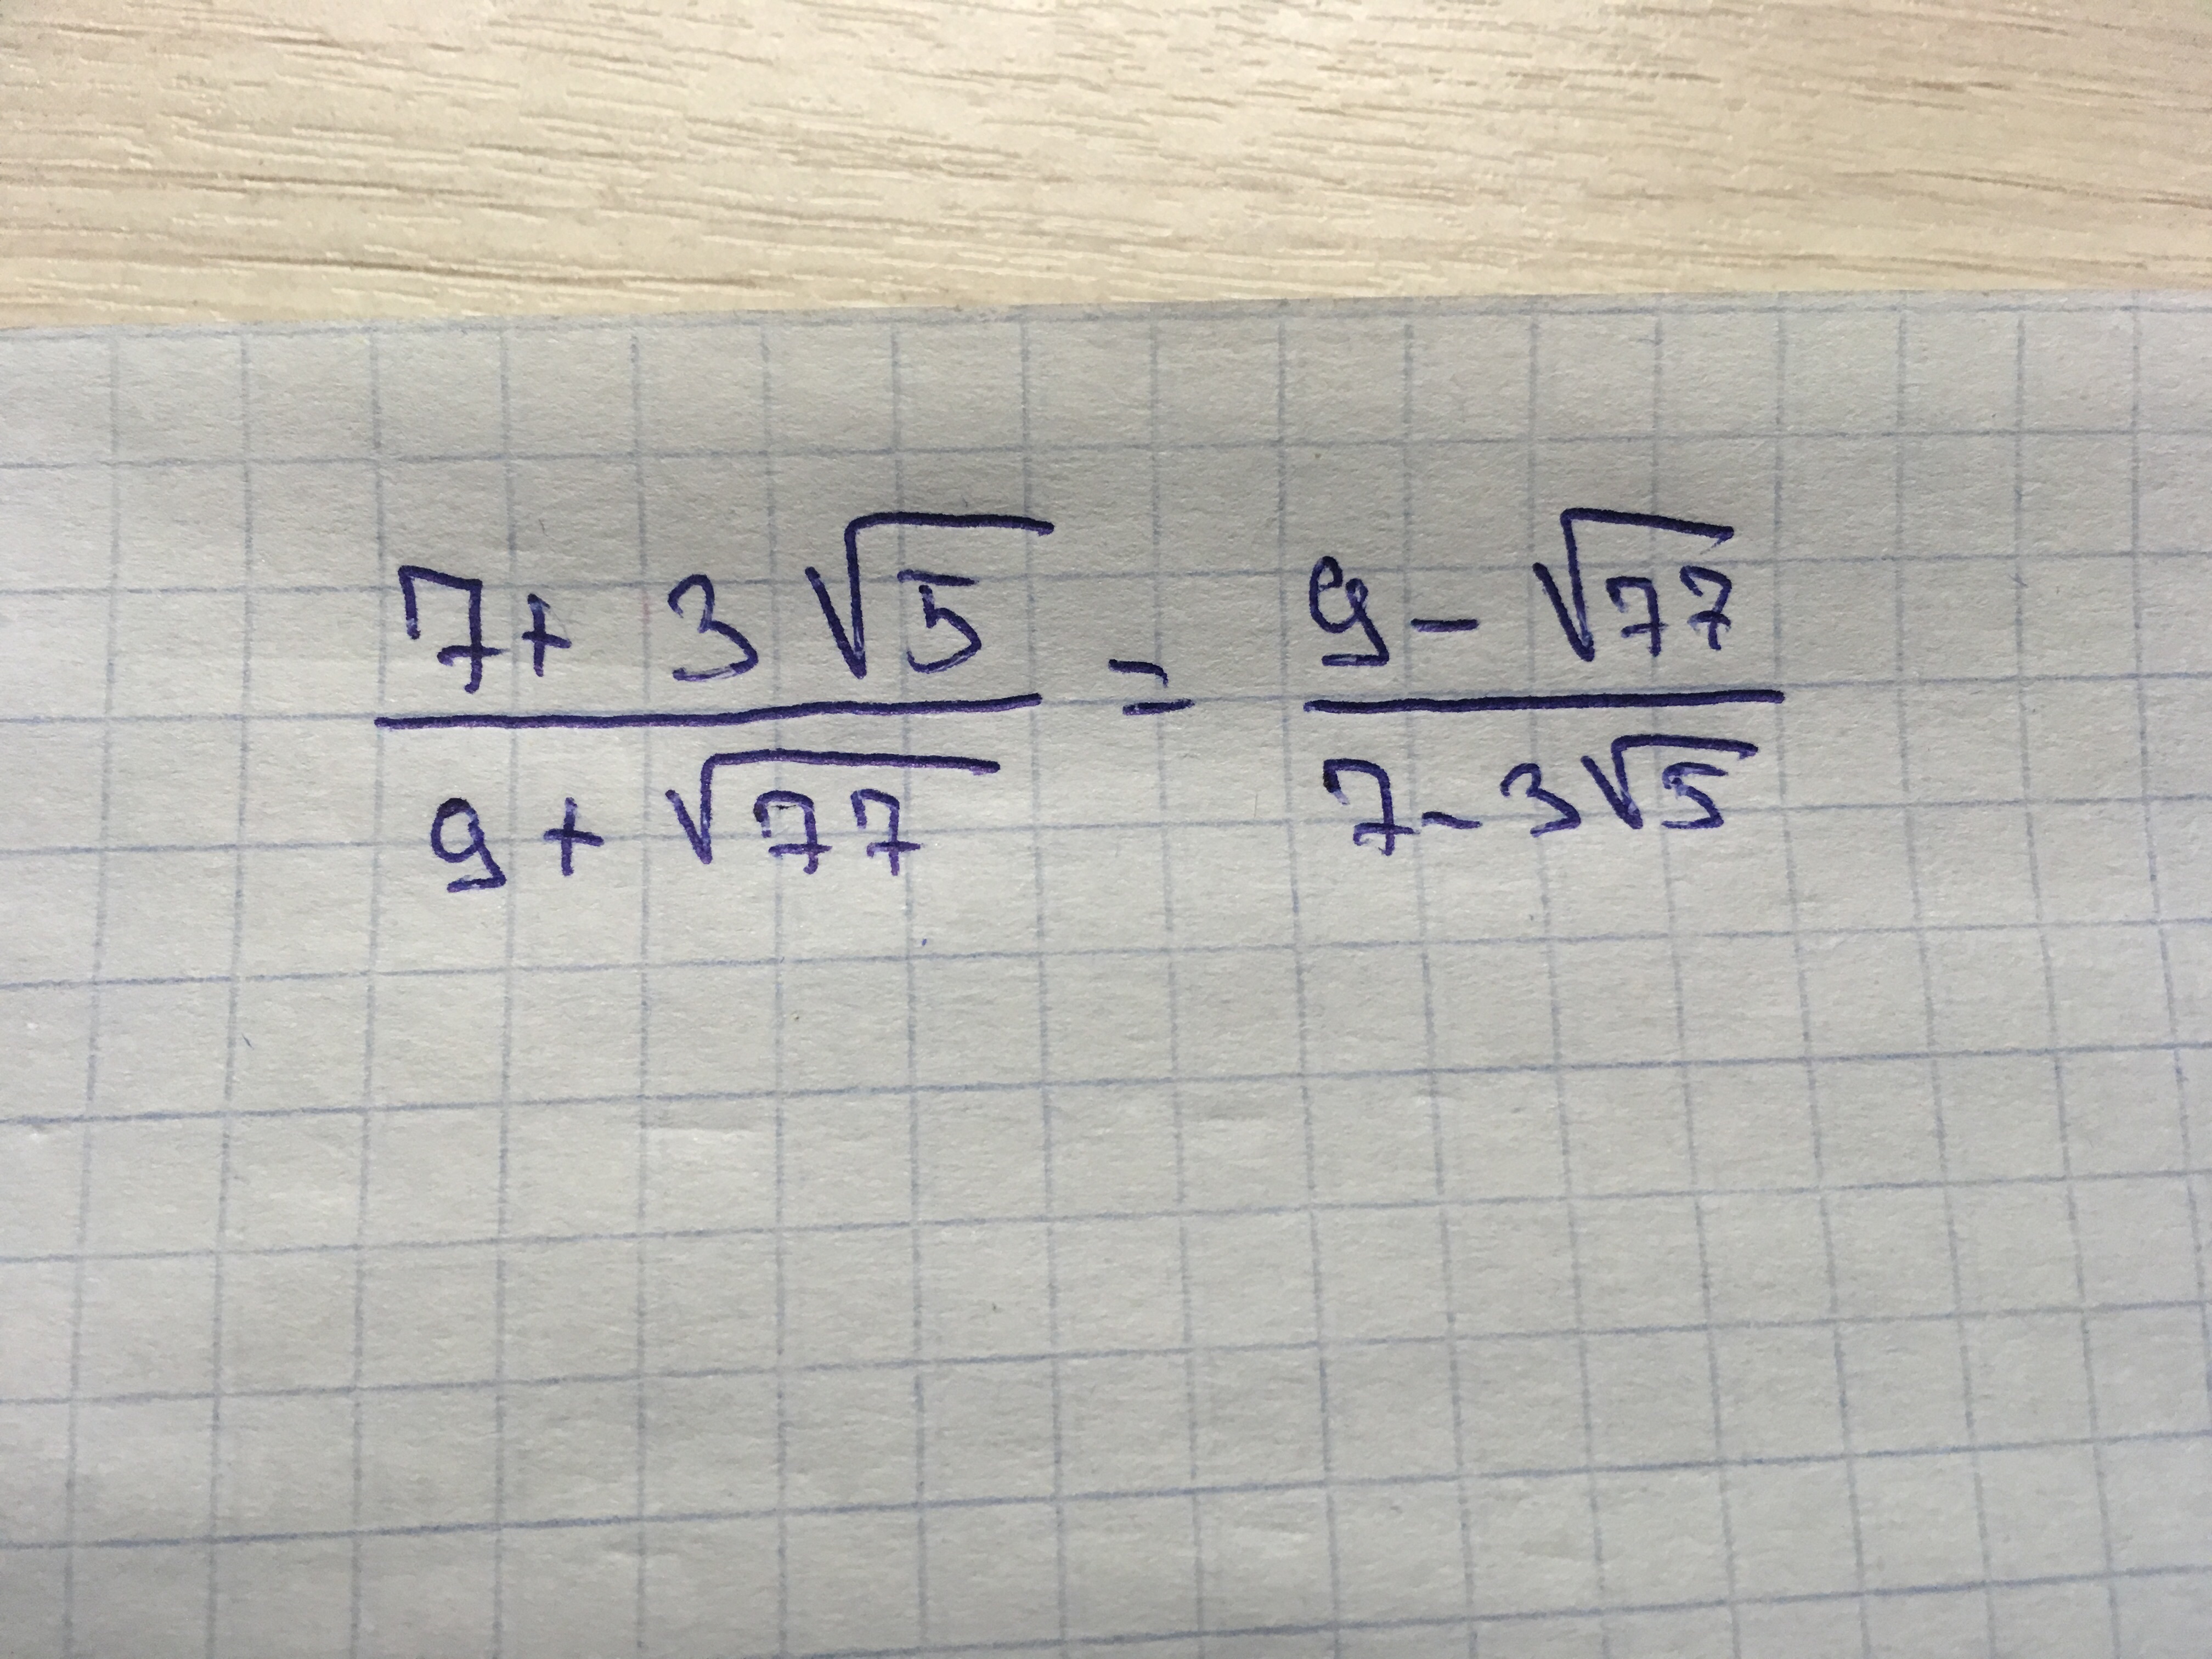 7+ 3√5 / 9+√77 = 9-√77 / 7-3√5